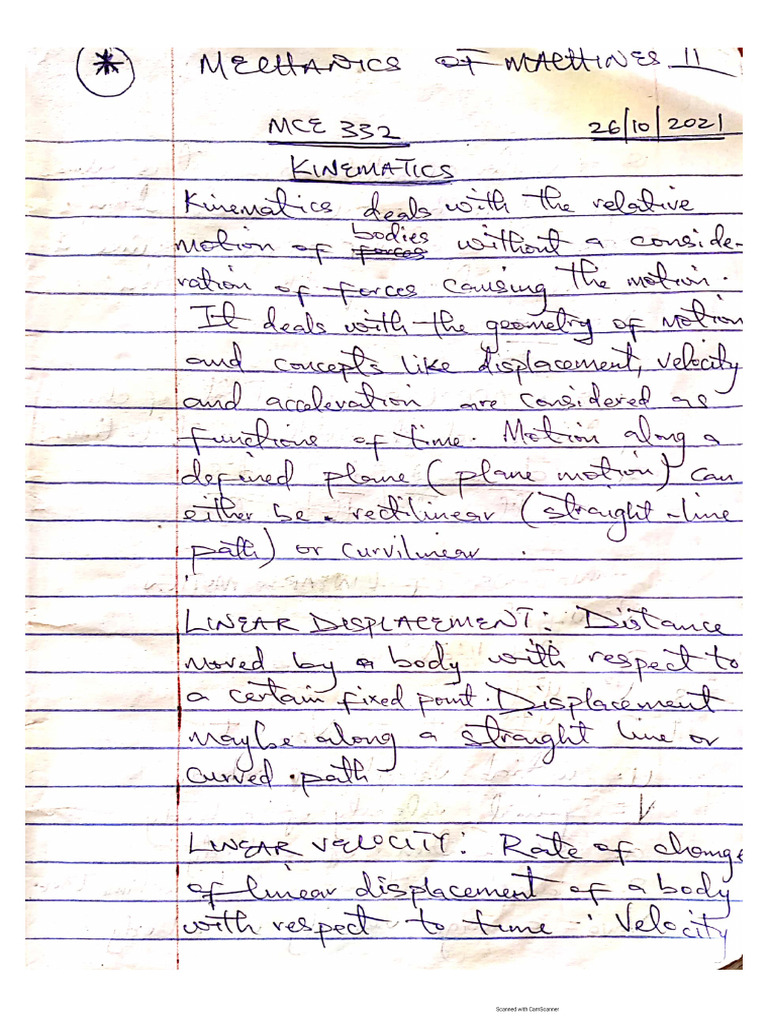 * MECHANICS OF MACHINES II
MCE 332 26/10/2021
KINEMATICS
Kinematics deals with the relative
motion of forces bodies without a conside-
ration of forces causing the motion.
It deals with the geometry of motion
and concepts like displacement, velocity
and acceleration are considered as
functions of time. Motion along a
defined plane (plane motion) can
either be rectilinear (straight-line
path) or curvilinear.
LINEAR DISPLACEMENT: Distance
moved by a body with respect to
a certain fixed point. Displacement
maybe along a straight line or
curved path
LINEAR VELOCITY: Rate of change
of linear displacement of a body
with respect to time. Velocity
Scanned with CamScanner